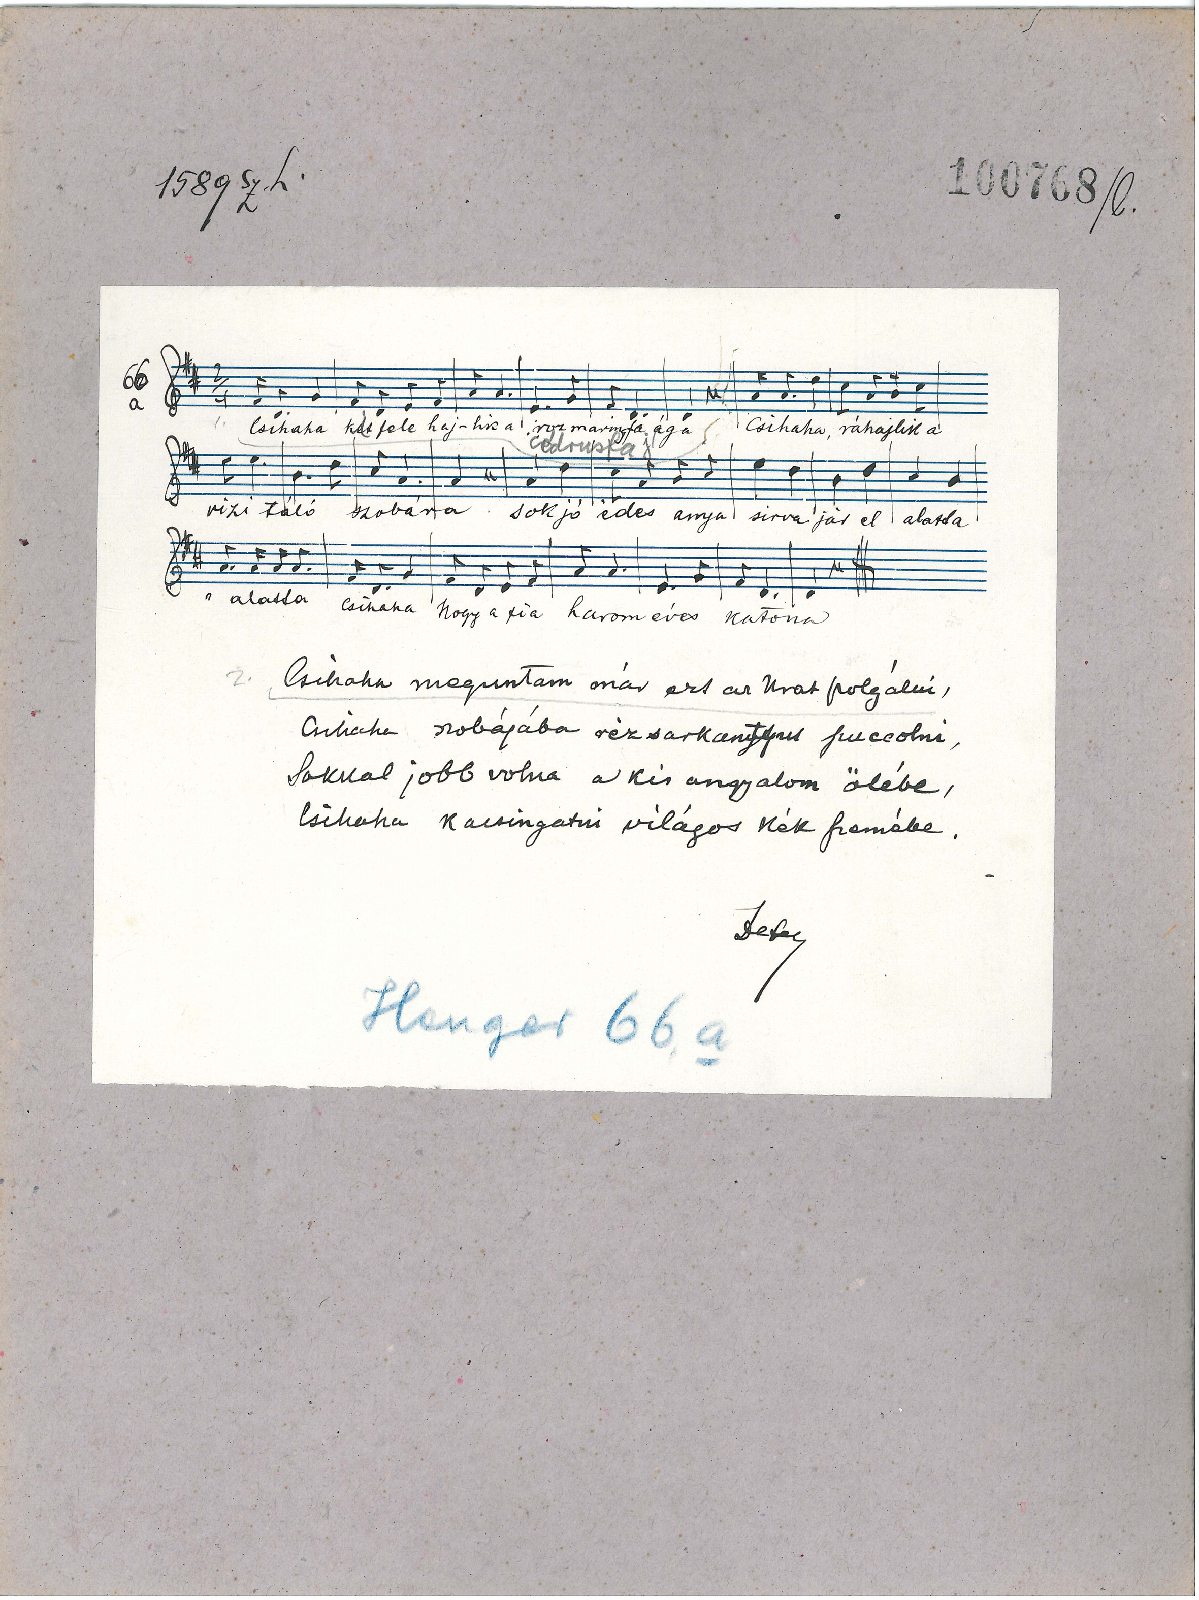 1589 sz. h.
100768/b.
66
a
Csihaha két fele haj-lik a rozmaringfa ága Csihaha, ráhajlik a
cédruska
vizi táló szobára sok jó édes anya sirva jár el alatta
" alatta Csihaha Hogy a fia három éves katona
2. Csihaha meguntam már ezt az Urat szolgálni,
Csihaha szobájába réz sarkantyut puccolni,
Sokkal jobb volna a kis angyalom ölébe,
Csihaha kacsingatni világos kék szemébe.
Henger 66.a